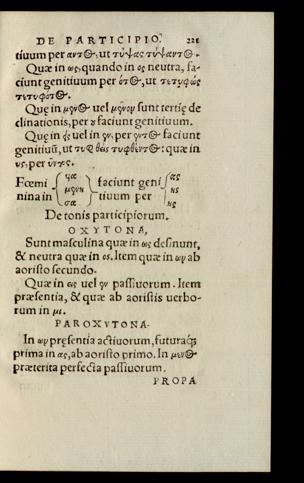 DE PARTICIPIO. 221
tiuum per αντος, ut τύψας τύψαντος.
Quæ in ως, quando in ος neutra, fa-
ciunt genitiuum per ότος, ut τετυφώς
τετυφότος.
Quę in μενος uel μενον sunt tertię de
clinationis, per ȣ faciunt genitiuum.
Quę in εὶς uel in εν, per εντος faciunt
genitiuũ, ut τυφθεὶς τυφθέντος: quæ in
υς, per ύντος.
Fœmi { ψα μενη σα } faciunt geni { ας ης ης
nina in tiuum per
De tonis participiorum.
OXYTONA,
Sunt masculina quæ in ως desinunt,
& neutra quæ in ος. Item quæ in ων ab
aoristo secundo.
Quæ in εις uel εν passiuorum. Item
præsentia, & quæ ab aoristis uerbo-
rum in μι.
PAROXYTONA.
In ων pręsentia actiuorum, futuraq́;
prima in ας, ab aoristo primo. In μενος
præterita perfecta passiuorum.
PROPA